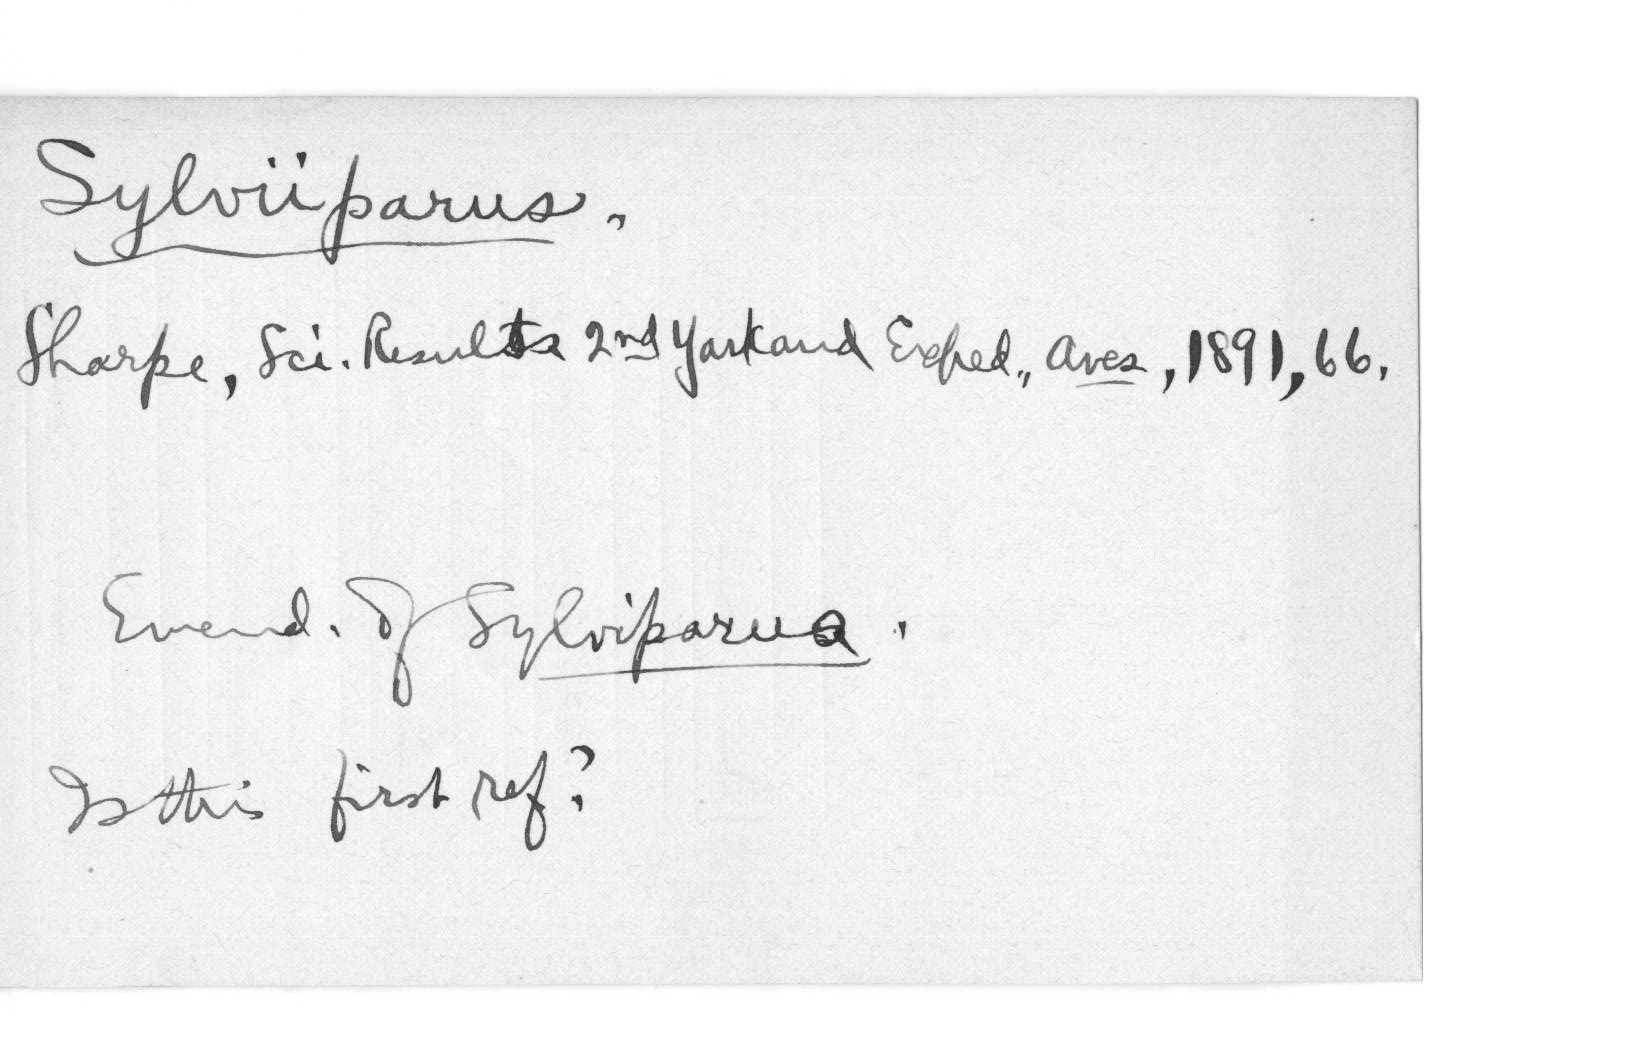 Sylviiparus.
Sharpe, Sci. Results 2nd Yarkand Exped., Aves, 1891, 66.
Emend. of Sylviparus.
Is this first ref?